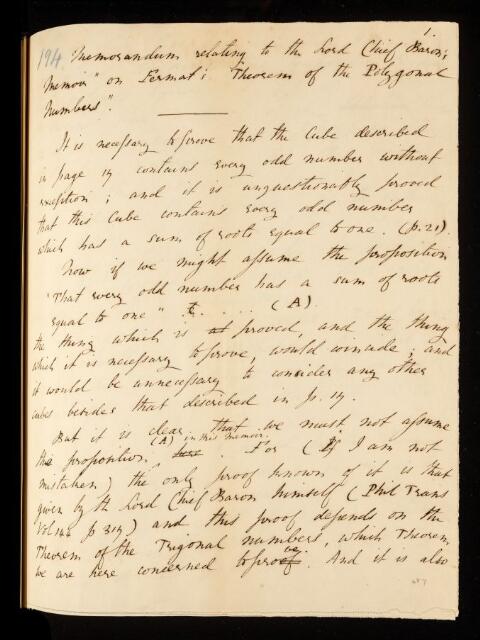 194 Memorandum relating to the Lord Chief Baron's
Memoir " on Fermat's Theorem of the Polygonal
Numbers".
It is necessary to prove that the Cube described
in page 19 contains every odd number without
exception ; and it is unquestionably proved
that this Cube contains every odd number
which has a sum of roots equal to one. (p. 21).
Now if we might assume the proposition
"That every odd number has a sum of roots
equal to one" . . . . (A)
the thing which is proved, and the thing
which it is necessary to prove, would coincide ; and
it would be unnecessary to consider any other
cubes besides that described in p. 19.
But it is clear that we must not assume
the proposition (A) in this memoir. For (If I am not
mistaken) the only proof known of it is that
given by the Lord Chief Baron himself (Phil Trans
Vol 144 p 319) and this proof depends on the
Theorem of the Trigonal numbers, which Theorem
we are here concerned to prove. And it is also